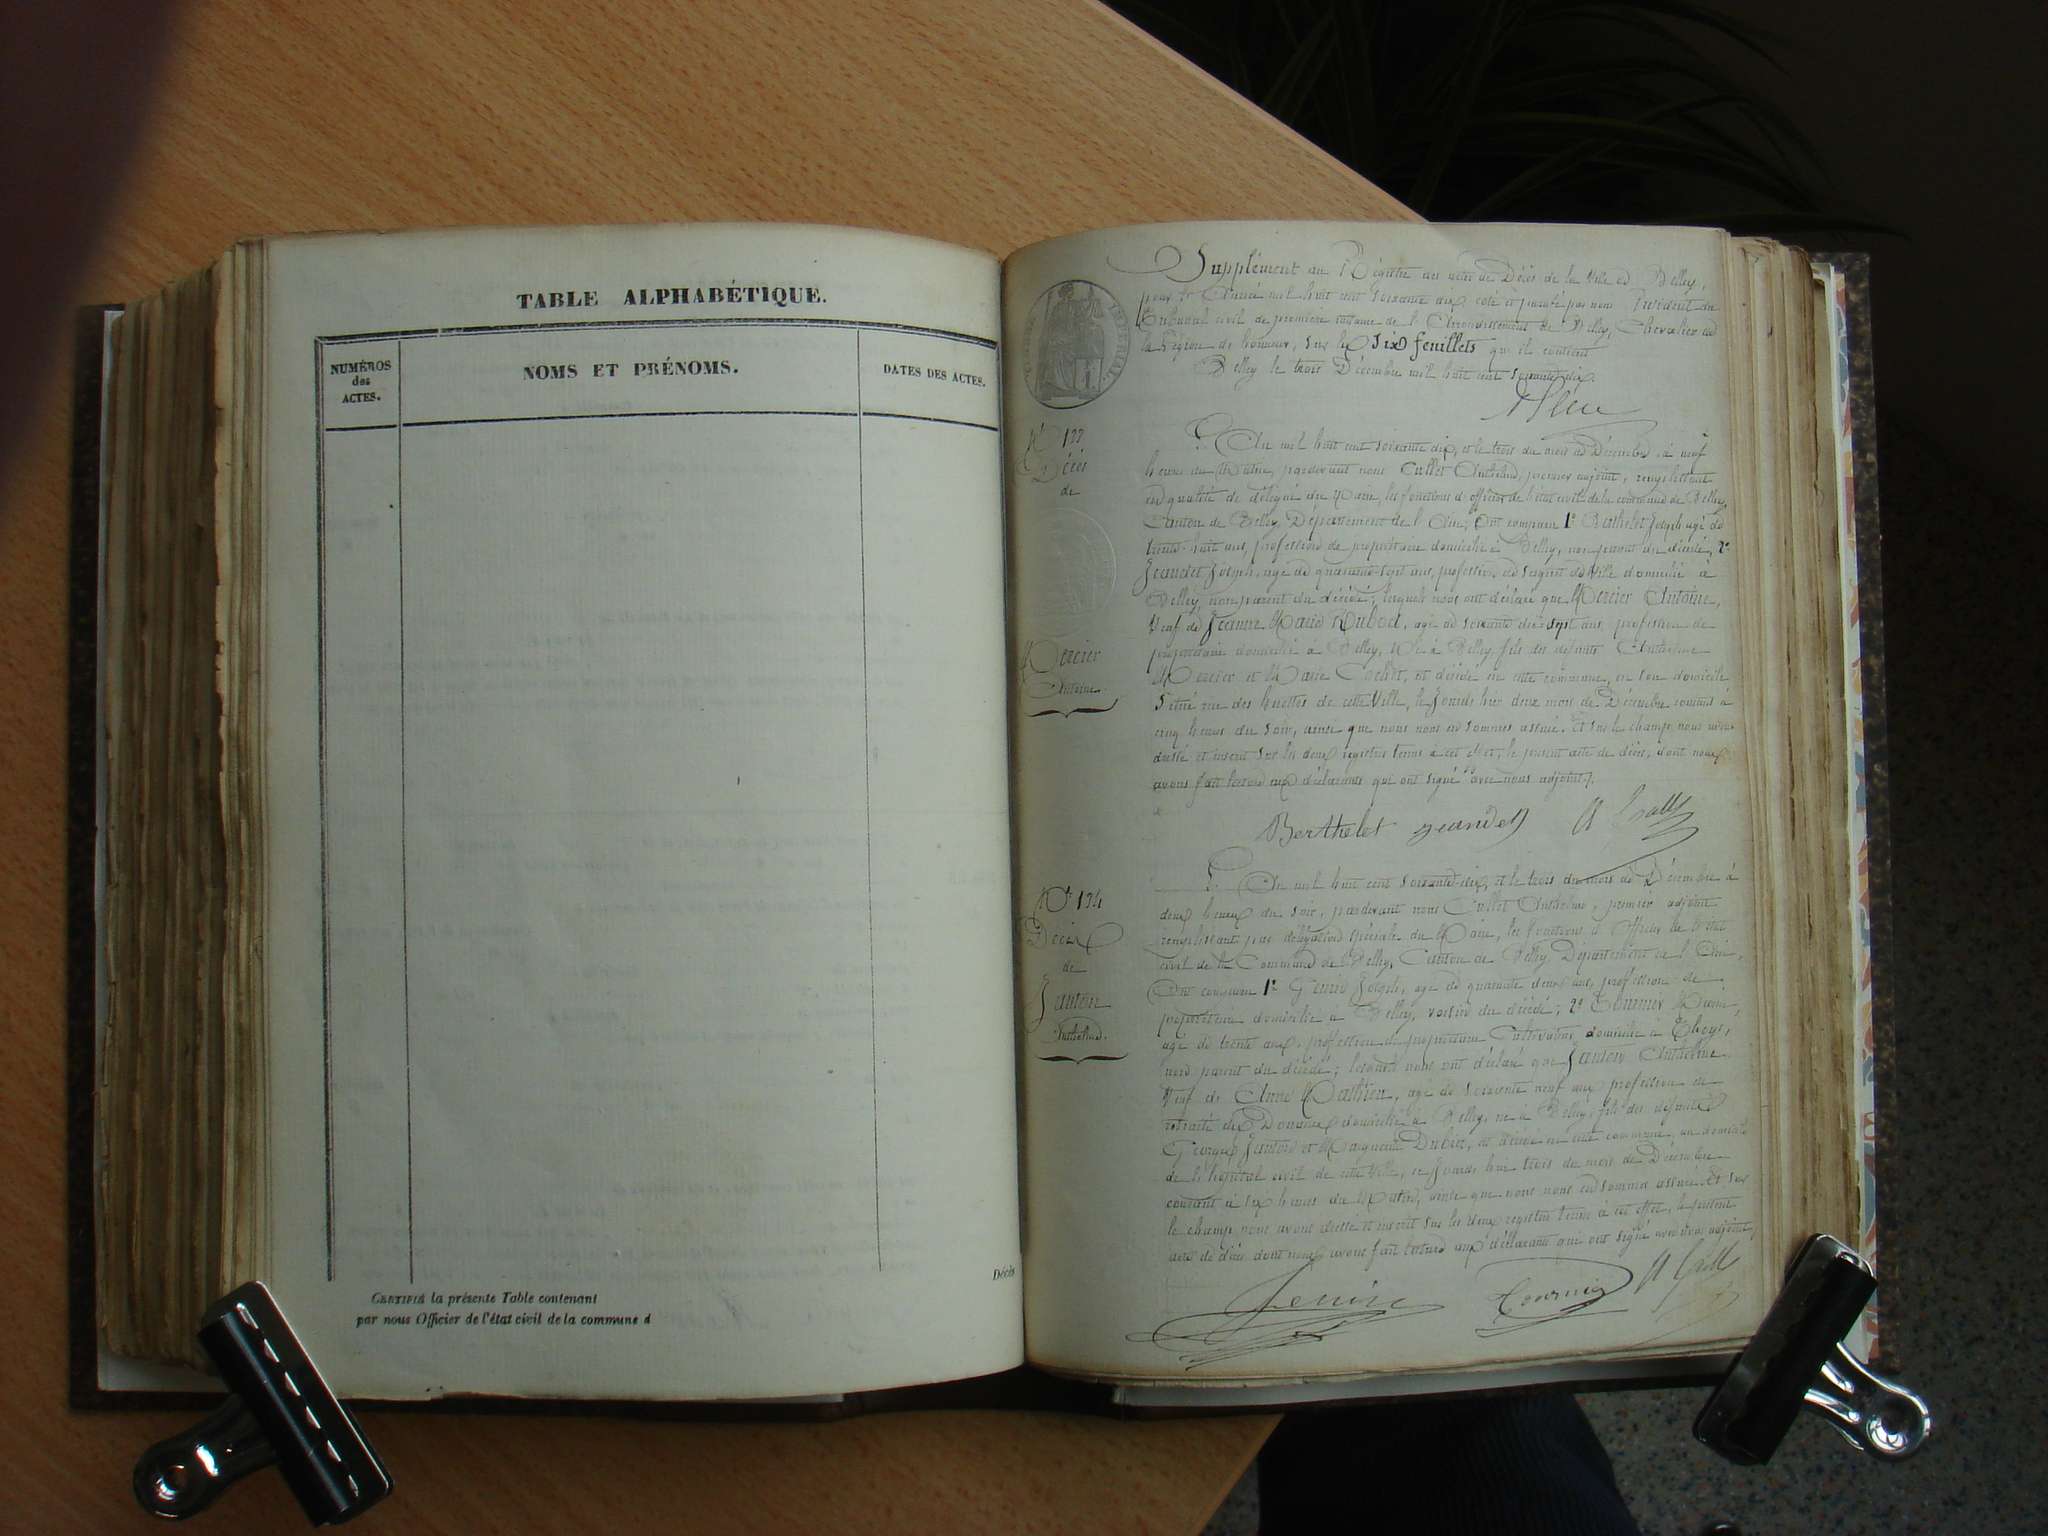 TABLE ALPHABÉTIQUE.
NUMÉROS
des
ACTES.
NOMS ET PRÉNOMS.
DATES DES ACTES.
Décès
CERTIFIÉ la présente Table contenant
par nous Officier de l'état civil de la commune d
Supplément au Régistre des actes de Décès de la Ville de Belley,
pour l'année mil huit cent soixante dix, coté et paraphé par nous Président du
Tribunal civil de première instance de l'Arrondissement de Belley, Chevalier de
la Légion de honneur, sur les six feuillets qu'il contient
Belley le trois Décembre mil huit cent soixante dix.
N° 133
Décès
de
Mercier
Antoine.
L'An mil huit cent soixante dix, et le trois du mois de Décembre à neuf
heures du Matin, pardevant nous Cullet Anthelme, premier adjoint, remplissant
en qualité de délégué du Maire, les fonctions d'officier de l'état civil de la commune de Belley,
Canton de Belley, Département de l'Ain; Ont comparu 1° Berthelet Joseph agé de
trente-huit ans, profession de propriétaire domicilié à Belley, non parent du décédé, 2°
Jeandet Joseph, agé de quarante-sept ans, profession de sergent de Ville domicilié à
Belley, non parent du décédé; lesquels nous ont déclaré que Mercier Antoine,
Veuf de Jeanne Marie Rubod, agé de soixante dix-sept ans, profession de
propriétaire domicilié à Belley, né à Belley, fils des défunts Anthelme
Mercier et Marie, est décédé en cette commune, en son domicile
Situé rue des de cette Ville, le jourde hier deux mois de Décembre courant à
cinq heures du soir, ainsi que nous nous en sommes assuré. Et sur le champ nous avons
dressé et inscrit sur les deux registres tenus à cet effet, le présent acte de décès, dont nous
avons fait lecture aux déclarants qui ont signé avec nous adjoint.
Berthelet Jeandet
N° 134
Décès
de
Janton
Anthelme.
L'An mil huit cent soixante-dix, et le trois du mois de Décembre à
deux heures du soir, pardevant nous Cullet Anthelme, premier adjoint
remplissant par délégation spéciale du Maire, les fonctions d'Officier de l'état
civil de la Commune de Belley, Canton de Belley, Département de l'Ain,
Ont comparu 1° Joseph, agé de quarante deux ans, profession de
propriétaire domicilié à Belley, voisin du décédé; 2° Tournier
agé de trente ans, profession de propriétaire Cultivateur, domicilié à
non parent du décédé; lesquels nous ont déclaré que Janton Anthelme
Veuf de Anne Mathieu, agé de soixante neuf ans profession de
retraité des Douanes domicilié à Belley, né à Belley, fils des défunts
George Janton et Marguerite, est décédé en cette commune, au domicile
de l'hôpital civil de cette Ville, ce jourde hui trois de mois de Décembre
courant à six heures du Matin, ainsi que nous nous en sommes assuré. Et sur
le champ nous avons dressé et inscrit sur les deux registres tenus à cet effet, le présent
acte de décès dont nous avons fait lecture aux déclarants qui ont signé avec nous adjoint